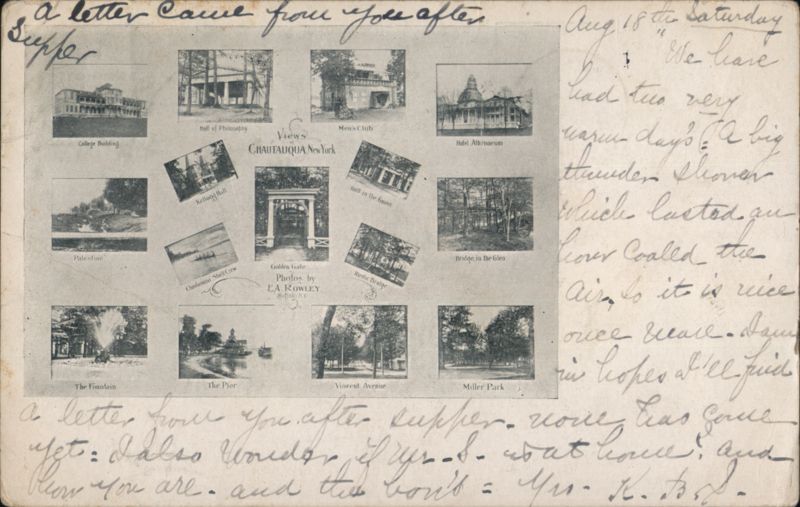 a letter came from you after
Supper
Aug 18th Saturday
We have
had two very
warm day's: A big
thunder shower
which lasted an
hour Coolled the
Air, so it is nice
once more. I am
in hopes I'll find
a letter from you after supper. none has come
yet = I also wonder if Mr. S. is at home? and
how you are. and the = Mrs. K. B. S.
College Building
Hall of Philosophy
Men's Club
Hotel Athenaeum
Views
of
CHAUTAUQUA, New York
Kellogg Hall
Hall in the Grove
Palestine
Golden Gate
Bridge in the Glen
Chautauqua Shell Crew
Rustic Bridge
Photos by
E.A. ROWLEY
The Fountain
The Pier
Vincent Avenue
Miller Park